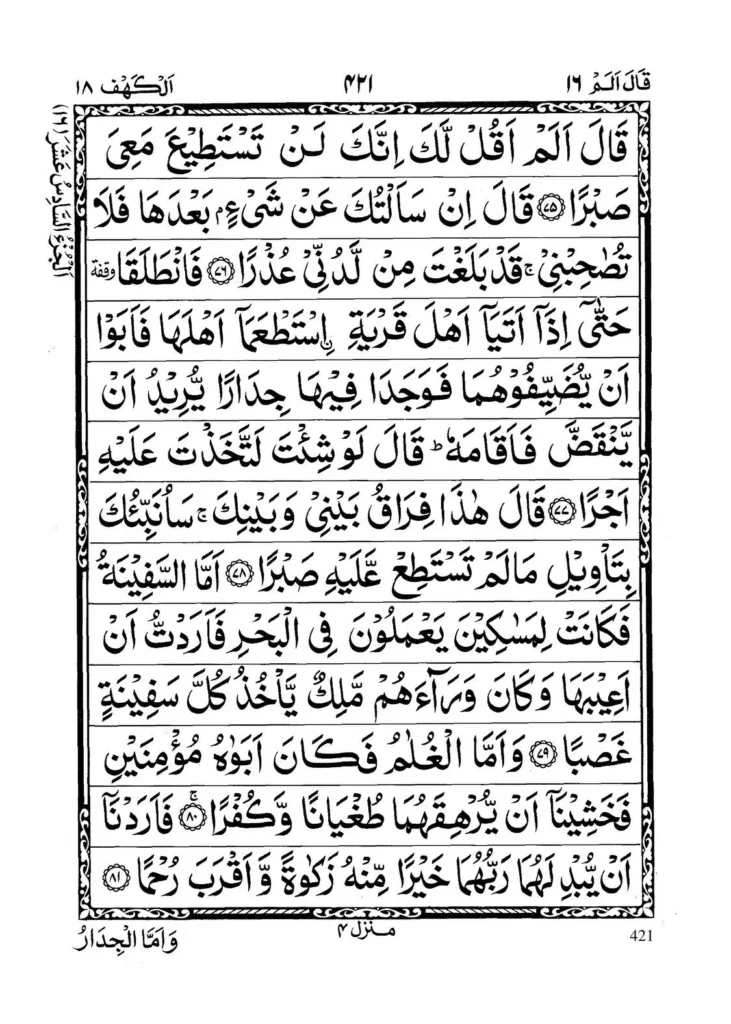 قَالَ اَلَمْ ١٦
٤٢١
اَلْكَهْف ١٨
اَلْجُزْءُ السَّادِسُ عَشَرَ (١٦)
قَالَ اَلَمْ اَقُلْ لَّكَ اِنَّكَ لَنْ تَسْتَطِيْعَ مَعِىَ
صَبْرًا ﴿٧٥﴾ قَالَ اِنْ سَاَلْتُكَ عَنْ شَىْءٍۭ بَعْدَهَا فَلَا
تُصٰحِبْنِىْ ۚ قَدْ بَلَغْتَ مِنْ لَّدُنِّىْ عُذْرًا ﴿٧٦﴾ فَانْطَلَقَا وقفة
حَتّٰٓى اِذَآ اَتَيَآ اَهْلَ قَرْيَةِ ۨاسْتَطْعَمَآ اَهْلَهَا فَاَبَوْا
اَنْ يُّضَيِّفُوْهُمَا فَوَجَدَا فِيْهَا جِدَارًا يُّرِيْدُ اَنْ
يَّنْقَضَّ فَاَقَامَهٗ ؕ قَالَ لَوْ شِئْتَ لَتَّخَذْتَ عَلَيْهِ
اَجْرًا ﴿٧٧﴾ قَالَ هٰذَا فِرَاقُ بَيْنِىْ وَبَيْنِكَ ۚ سَاُنَبِّئُكَ
بِتَاْوِيْلِ مَالَمْ تَسْتَطِعْ عَّلَيْهِ صَبْرًا ﴿٧٨﴾ اَمَّا السَّفِيْنَةُ
فَكَانَتْ لِمَسٰكِيْنَ يَعْمَلُوْنَ فِى الْبَحْرِ فَاَرَدْتُّ اَنْ
اَعِيْبَهَا وَكَانَ وَرَآءَهُمْ مَّلِكٌ يَّاْخُذُ كُلَّ سَفِيْنَةٍ
غَصْبًا ﴿٧٩﴾ وَاَمَّا الْغُلٰمُ فَكَانَ اَبَوٰهُ مُؤْمِنَيْنِ
فَخَشِيْنَآ اَنْ يُّرْهِقَهُمَا طُغْيَانًا وَّكُفْرًا ۚ ﴿٨٠﴾ فَاَرَدْنَآ
اَنْ يُّبْدِلَهُمَا رَبُّهُمَا خَيْرًا مِّنْهُ زَكٰوةً وَّاَقْرَبَ رُحْمًا ﴿٨١﴾
وَاَمَّا الْجِدَارُ
منزل ٤
421